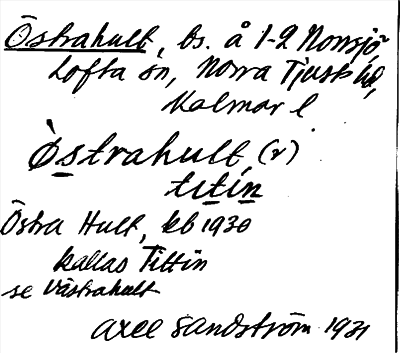 Östrahult, bs. å 1-2 Norrsjö
Lofta sn, Norra Tjusts hd,
Kalmar l
Òstrahult (r)
tɩtin
Östra Hult, kb 1930
kallas Tittin
se Västrahult
Axel Sandström 1931